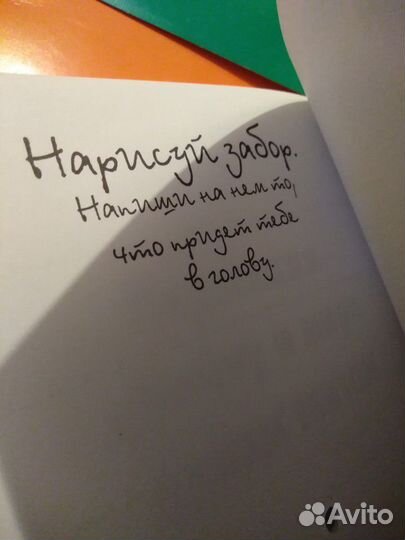 Нарисуй забор.
Напиши на нем то,
что придет тебе
в голову.
Avito